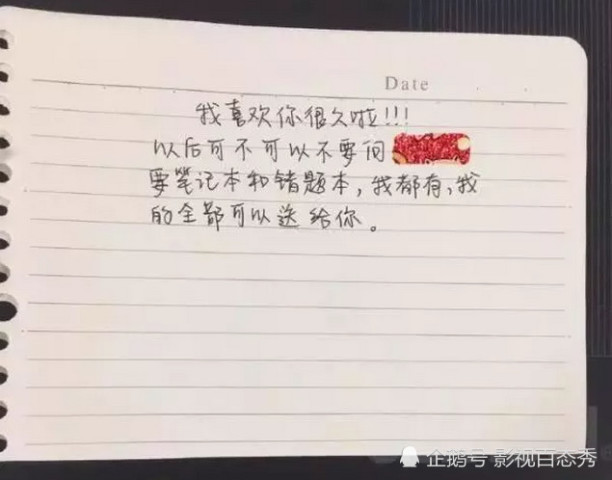 Date
我喜欢你很久啦!!!
以后可不可以不要问
要笔记本和错题本,我都有,我
的全部可以送给你。
企鹅号 影视日态秀